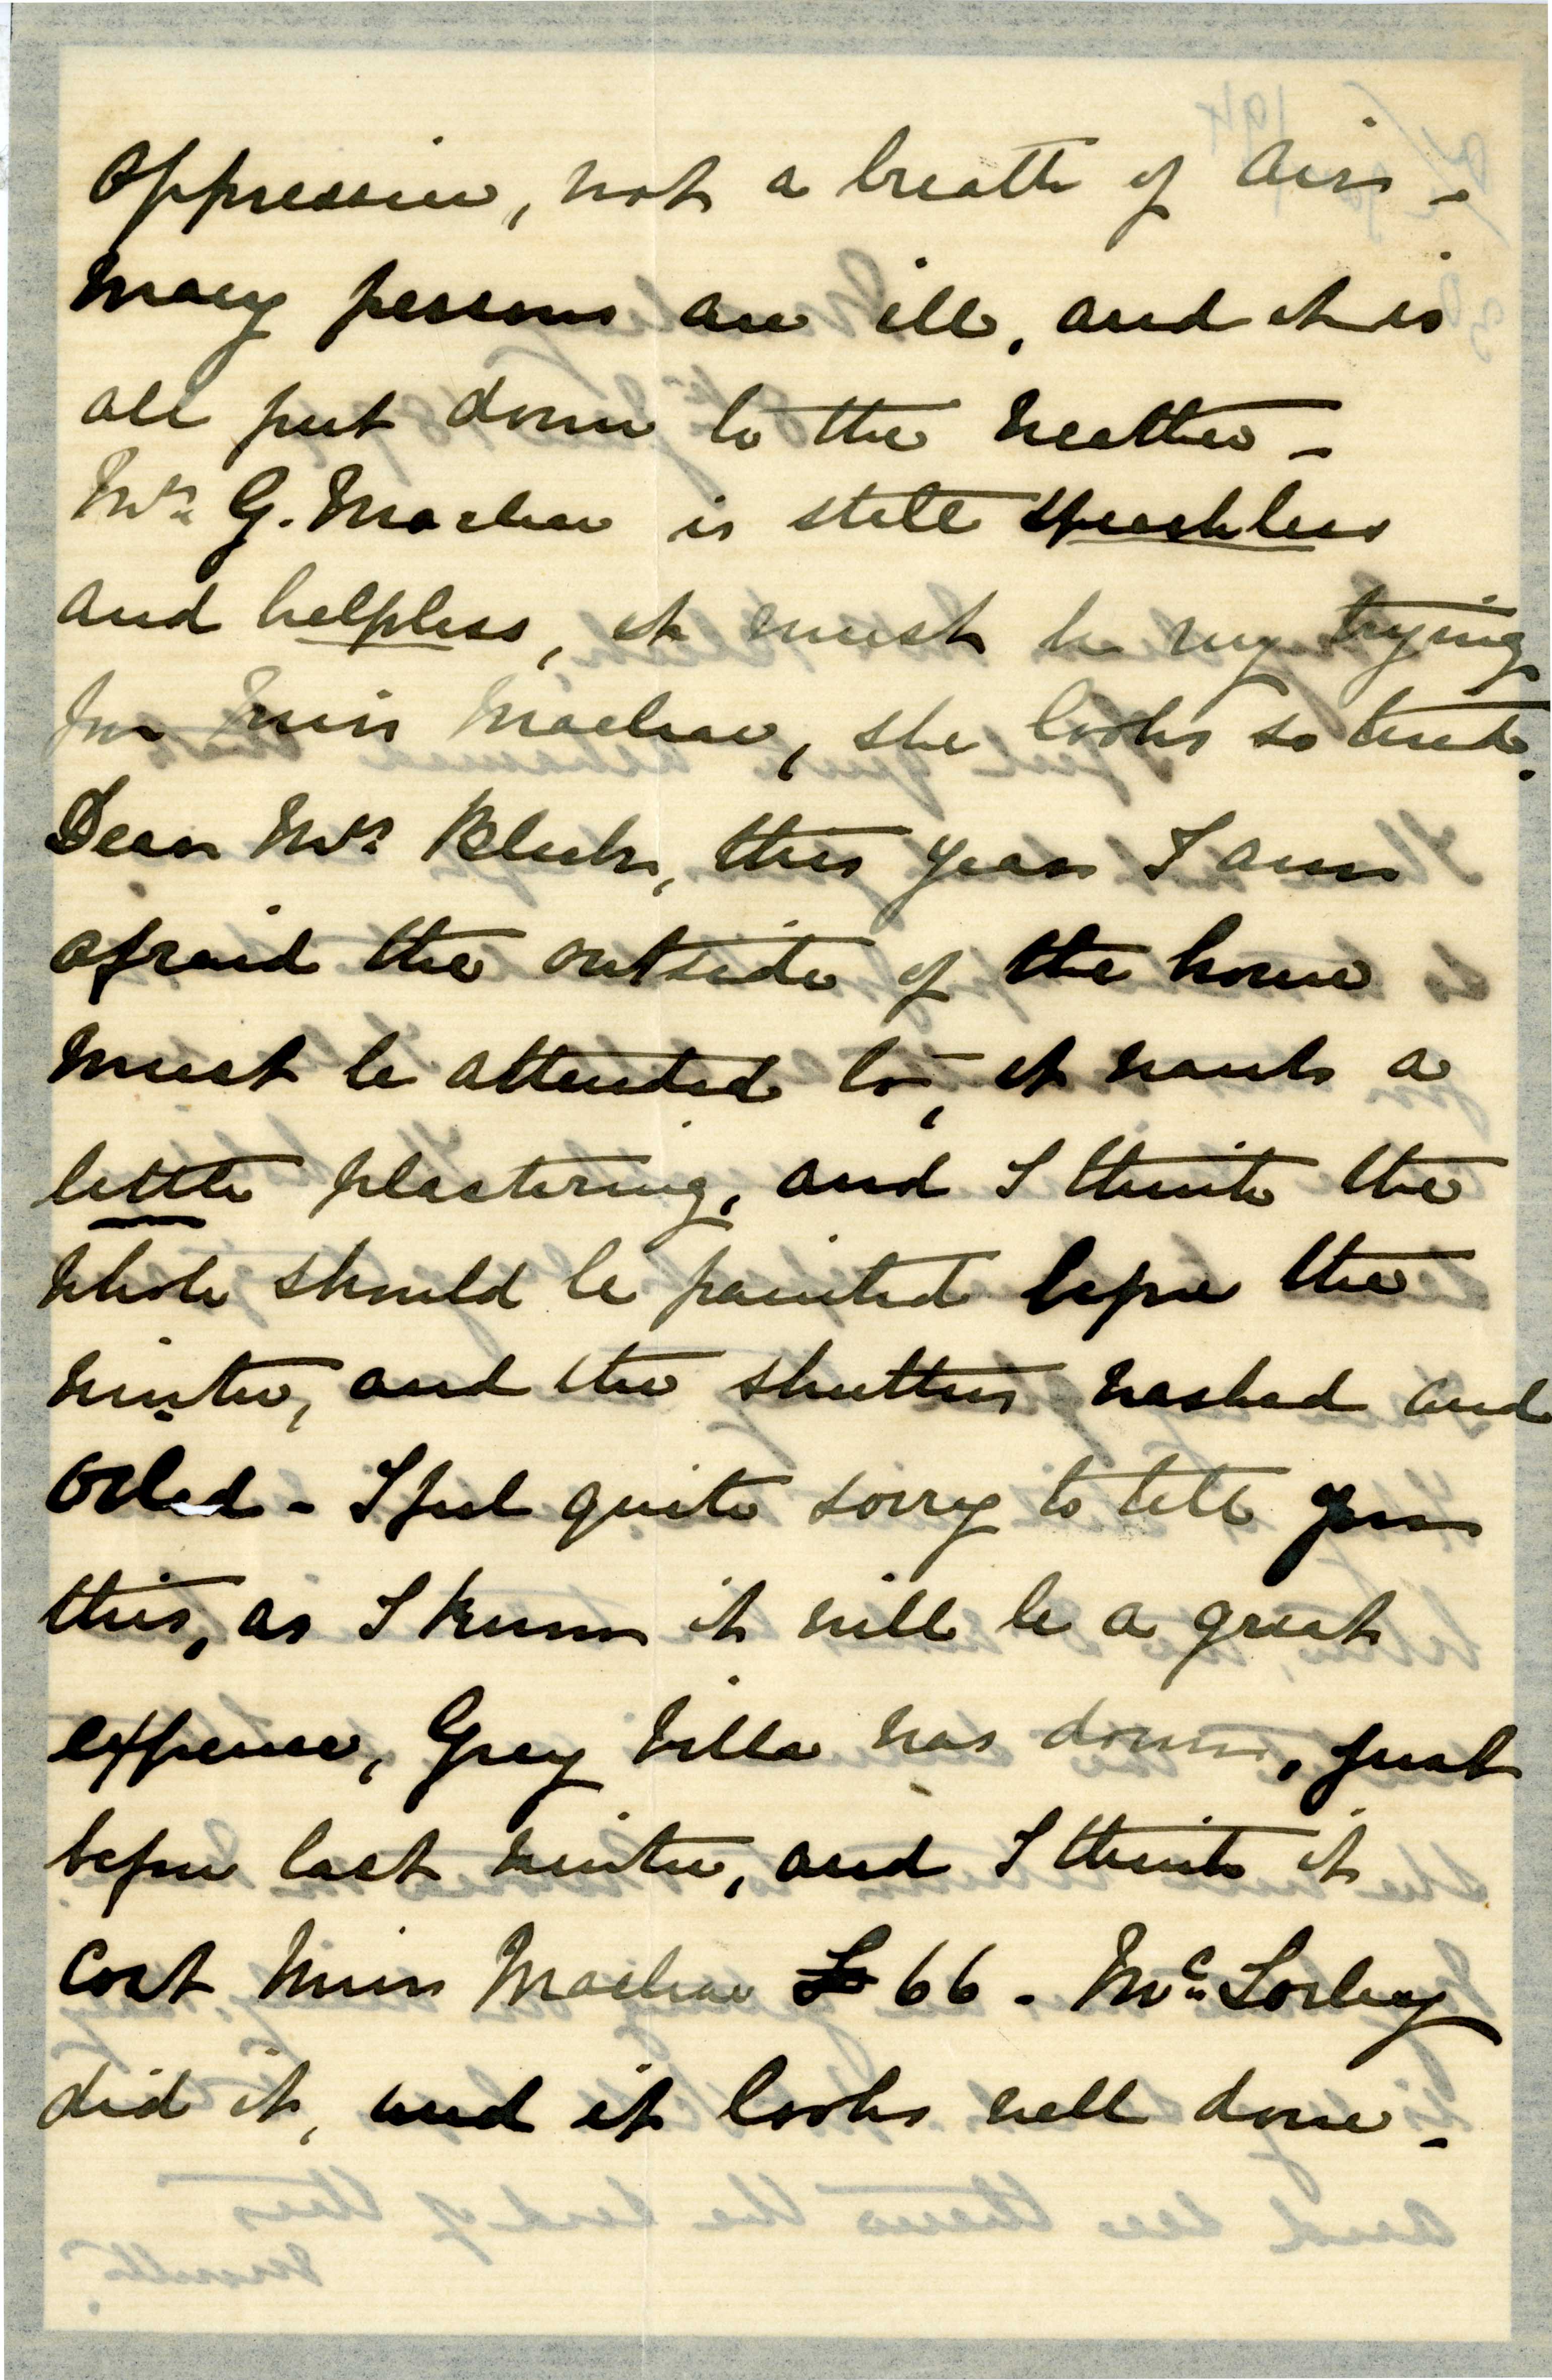 oppressive, not a breath of air -
Many persons are ill, and it is
all put down to the weather -
Mrs G. Maclean is still speechless
and helpless, it must be very trying
for Miss Maclean, she looks so tired.
Dear Mrs this year I am
afraid the outside of the house
must be attended to -, it wants a
little plastering, and I think the
whole should be painted before the
winter, and the shutters washed and
oiled - I feel quite sorry to tell you
this, as I know it will be a great
expense, Grey Villa was done, just
before last winter, and I think it
cost Miss Maclean £ 66 - McSorley
did it, and it looks well done -